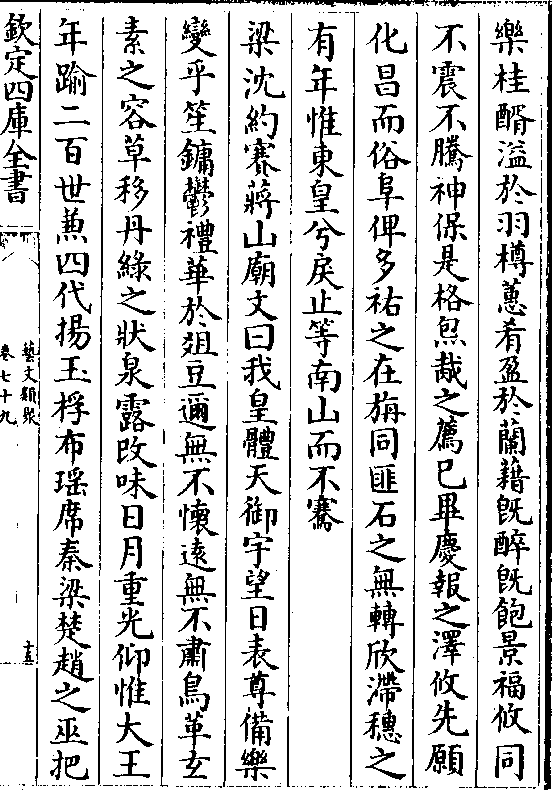 樂桂醑溢於羽樽蕙肴盈於蘭藉既醉既飽景福攸同
不震不騰神保是格炰胾之薦已畢慶報之澤攸先願
化昌而俗阜俾多祐之在旃同匪石之無轉欣滯穗之
有年惟東皇兮戾止等南山而不騫
梁沈約賽蔣山廟文曰我皇體天御宇望日表尊備樂
變乎笙鏞鬱禮華於俎豆邇無不懷遠無不肅鳥革玄
素之容草移丹綠之狀泉露改味日月重光仰惟大王
年踰二百世兼四代揚玉桴布瑶席秦梁楚趙之巫把
欽定四庫全書
藝文類聚
卷七十九